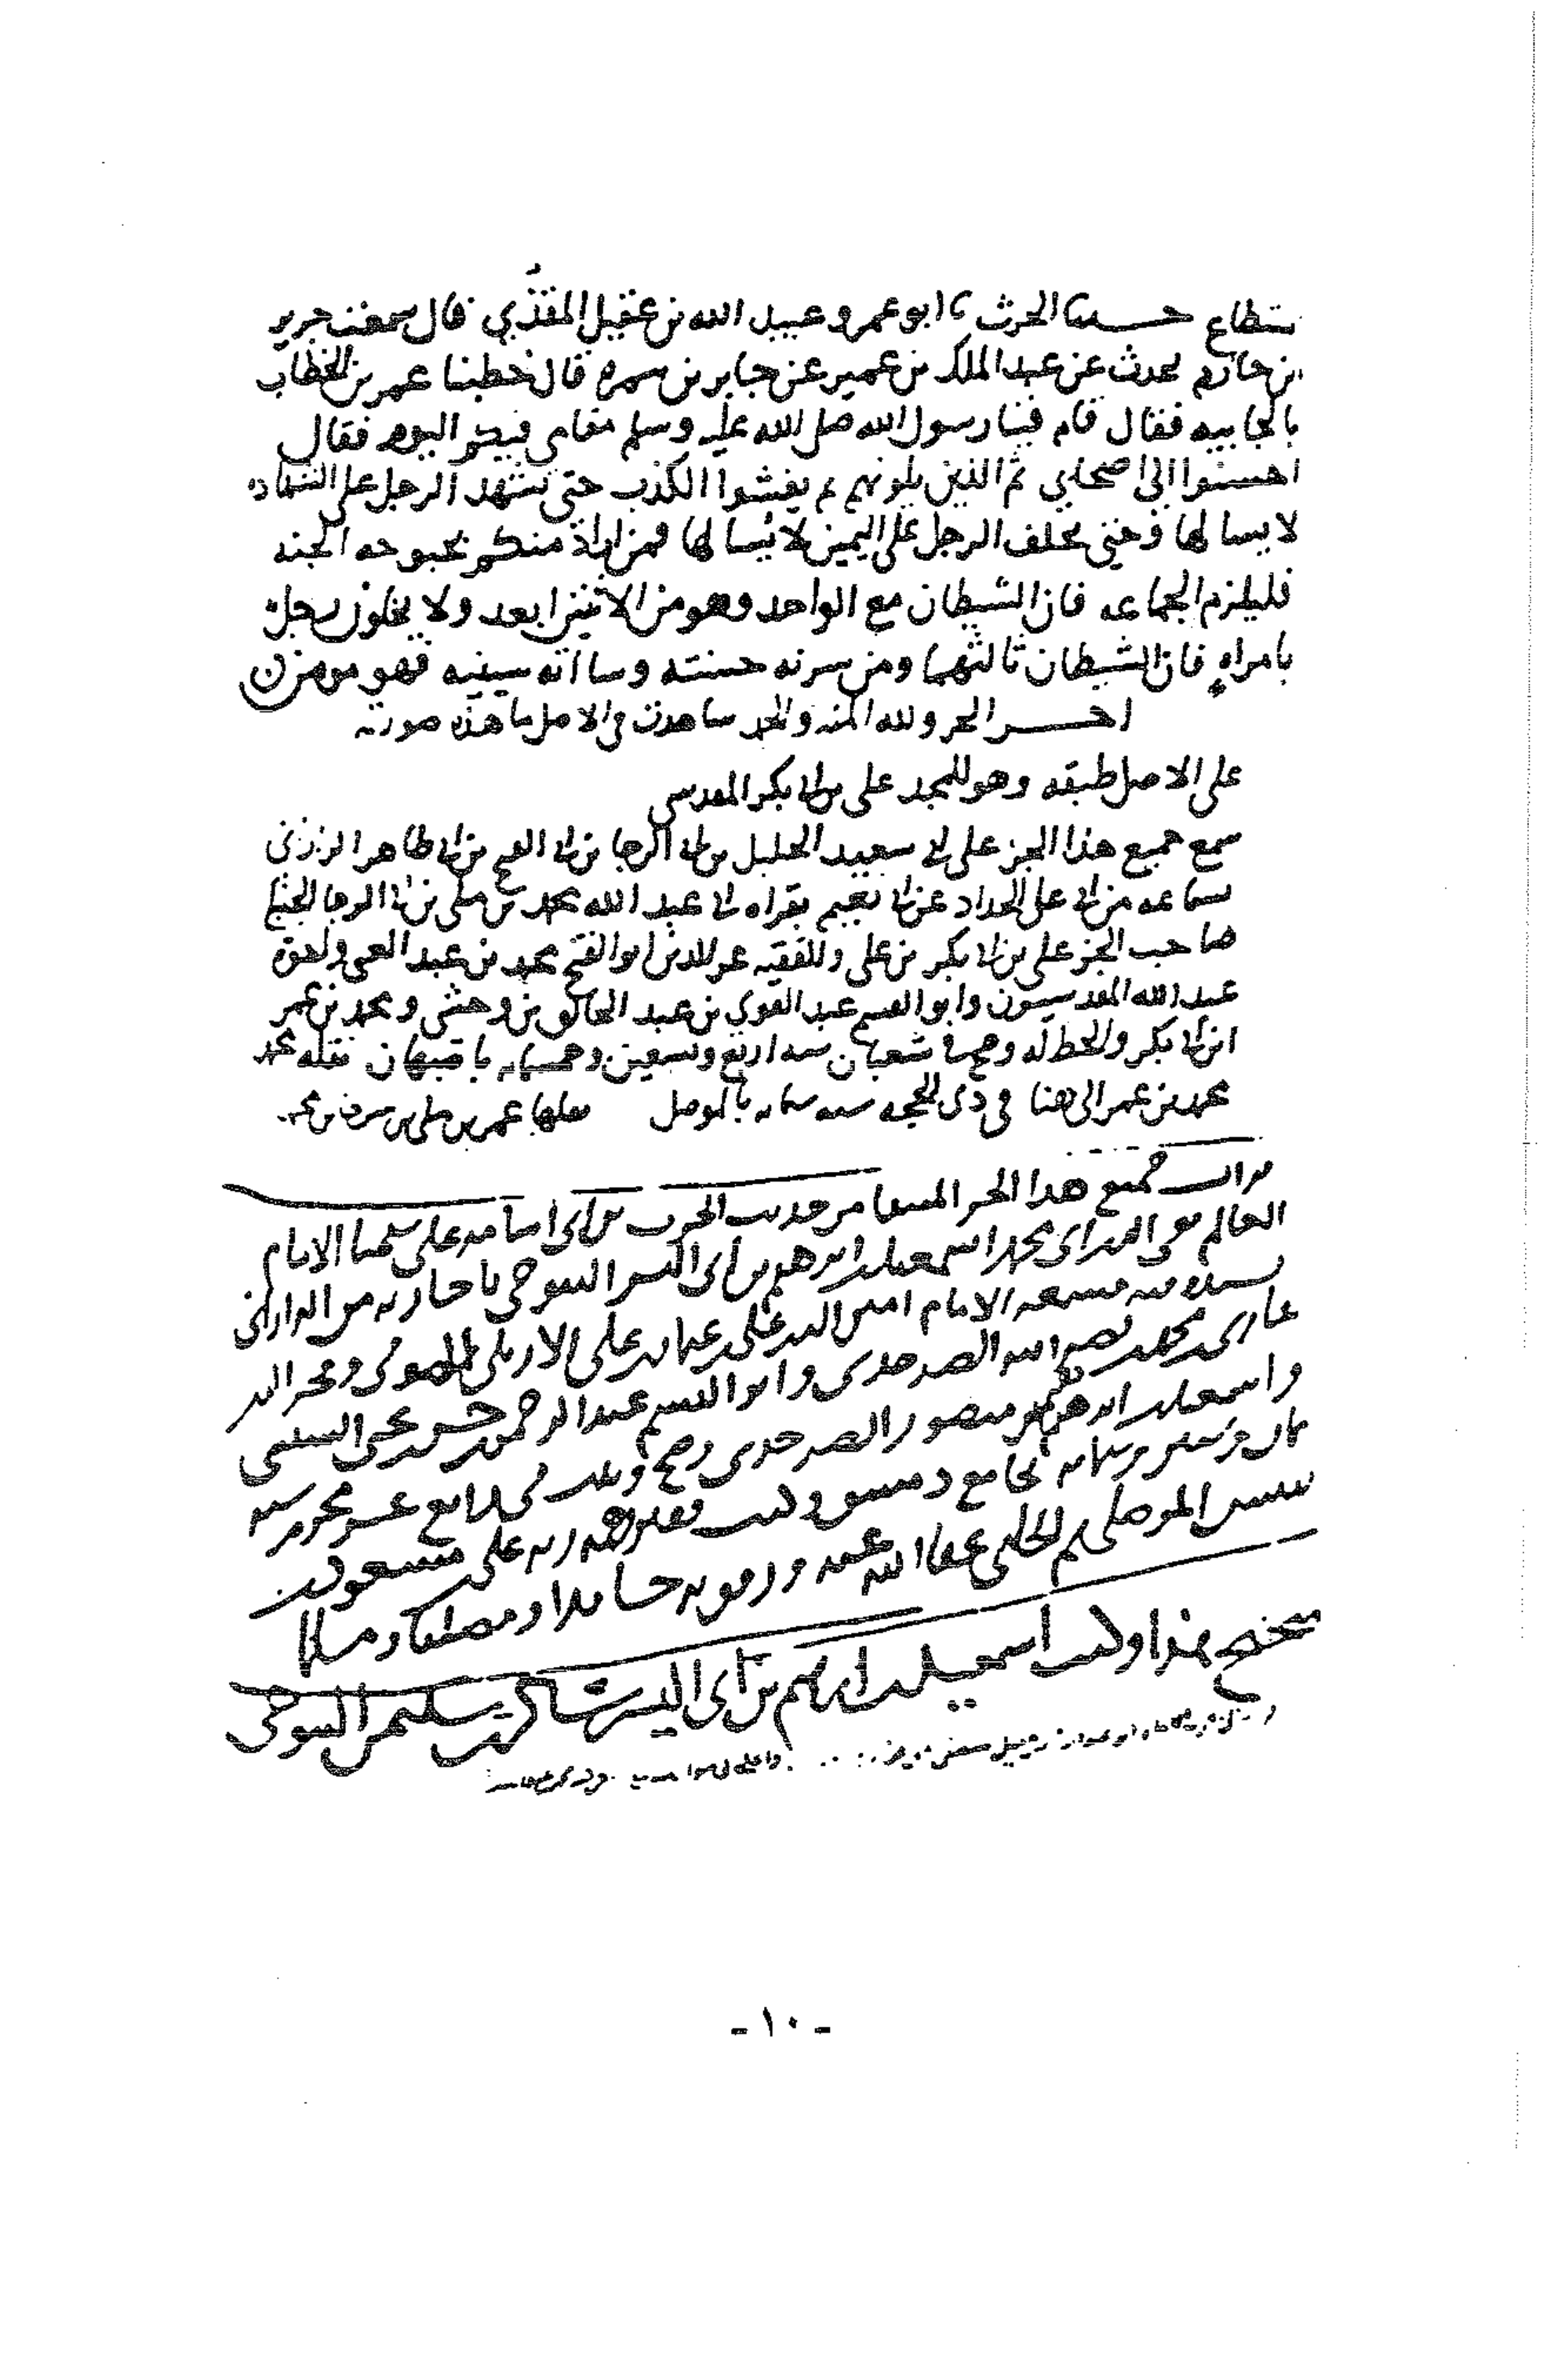 ستطاع حدثنا الحرث ثنا ابو عمرو عبيد الله بن عقيل المقرئ قال سمعت جرير
بن حازم يحدث عن عبد الملك بن عمير عن جابر بن سمره قال خطبنا عمر بن الخطاب
بالجابيه فقال قام فينا رسول الله صلى الله عليه وسلم مقامي فيكم اليوم فقال
احسنوا الى اصحابي ثم الذين يلونهم ثم يفشوا الكذب حتى يشهد الرجل على الشهاده
لا يسالها وحتى يحلف الرجل على اليمين لا يسالها فمن اراد منكم بحبوحه الجنه
فليلزم الجماعه فان الشيطان مع الواحد وهو من الاثنين ابعد ولا يخلون رجل
بامراه فان الشيطان ثالثهما ومن سرته حسنته وساءته سيئته فهو مومن
اخر الجزو ولله المنه والحمد شاهدت في الاصل ما هذه صورته
على الاصل طبقه وهو للمجد على بن ابى بكر المقدسي
سمع جميع هذا الجز على ابى سعيد الخليل بن ابى الرجا بن ابى الفتح بن ابى طاهر الرازني
سماعه من ابى على الحداد عن ابى نعيم بقراه ابى عبد الله محمد بن مكي بن ابى الرجا الحنبلي
صاحب الجز على بن ابى بكر بن على والفقيه عز الدين ابو الفتح محمد بن عبد الغني واخوه
عبد الله المقدسيون وابو القسم عبد القوي بن عبد الخالق بن وحشي ومحمد بن عمر
ابن ابى بكر والخط له وصح في شعبان سنه اربع وتسعين وخمسمايه باصبهان نقله محمد
محمد بن عمر الى هنا في ذي الحجه سنه ستمايه بالموصل نقلها عمر بن على بن
قرات جميع هذا الجز المنتقا من حديث الحرث بن ابى اسامه على شيخنا الامام
العالم تقى الدين ابى محمد اسمعيل بن ابرهيم بن ابى اليسر التنوخى باجازته من الرارانى
بسنده فيه فسمعه الامام امين الدين على بن عثمان بن على الاربلى الصوفى وفخر الدين
محمد بن نصر الله الصرخدى وابو القسم عبد الرحمن بن حسن بن يحيى السبتى
واسمعيل بن ابرهيم بن منصور الصرخدى وصح وثبت فى رابع عشر محرم سنه
وستين وستمايه بجامع دمشق وكتب فقير رحمه ربه على بن مسعود بن
نفيس الموصلى ثم الحلبى عفا الله عنه ورفق به حامدا ومصليا ومسلما
صحيح هذا وكتب اسمعيل بن ابراهيم بن ابى اليسر شاكر بن سليمن التنوخى
- ١٠ -